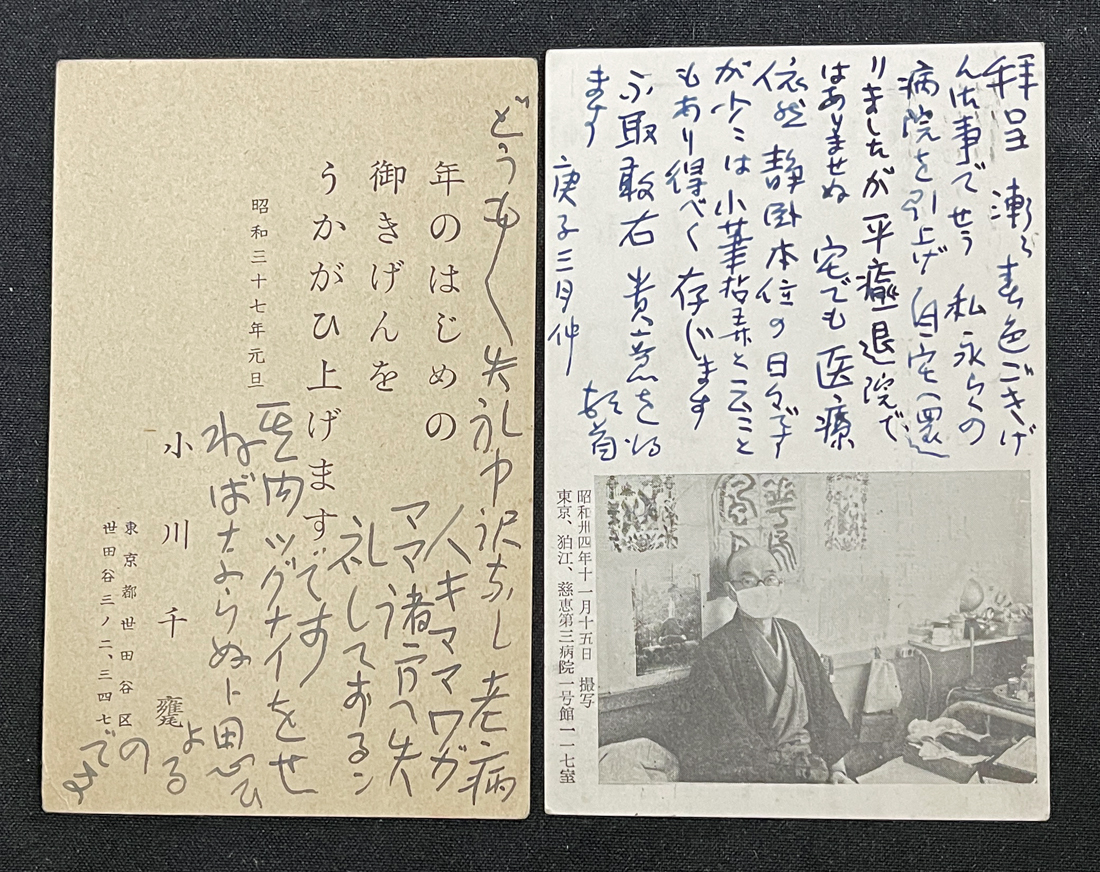 どうも〱失礼申訳なし老病
人キママワガ
ママ諸方へ失
礼しておるン
ですす
其内ツグナイをせ
ねばならぬト思ひ
よる
ので
年のはじめの
御きげんを
うかがひ上げます
昭和三十七年元旦
小川千甕
東京都世田谷区
世田谷三ノ二、三四七
拝呈 漸々春色ごきげ
ん佳事でせう 私永らくの
病院を引上げ自宅へ還
りましたが平癒退院で
はありませぬ 宅でも医療
依然 静臥本位の日々です
が少々は小筆拈弄と云こと
もあり得べく存じます
不取敢右 貴意を得
ます 頓首
庚子三月仲
昭和卅四年十一月十五日 撮写
東京、狛江、慈恵第三病院一号館一一七室